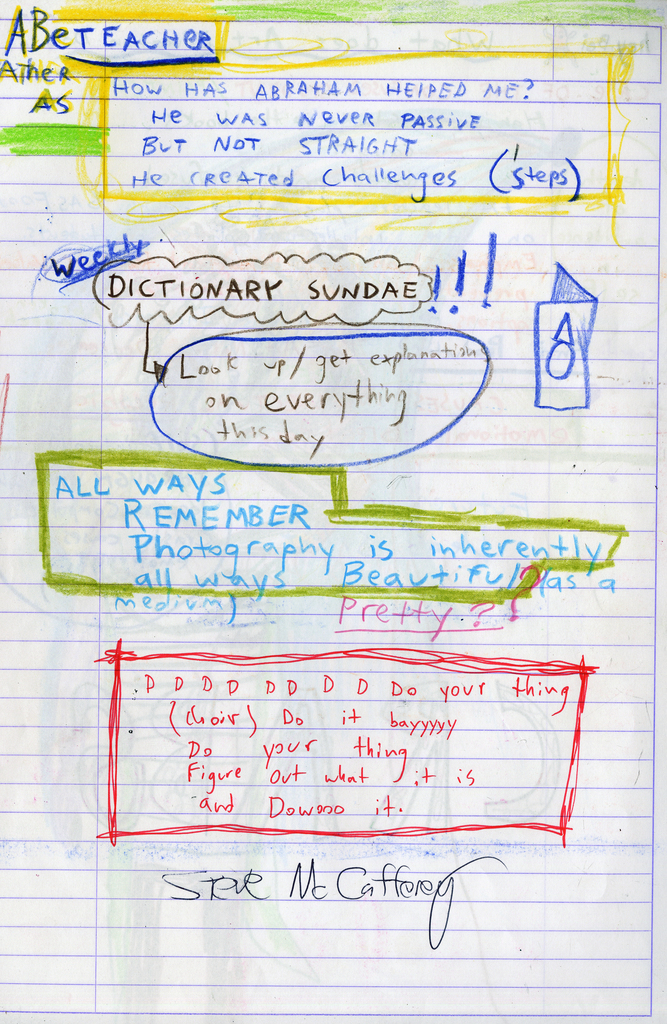 ABe TEACHER
ATHER
AS
HOW HAS ABRAHAM HElPED ME?
He WAS NEVER PASSIVE
BUT NOT STRAIGHT
He CREATED Challenges (steps)
Weekly
DICTIONARY SUNDAE!!!
A
O
Look up/get explanations
on everything
this day
ALL WAYS
REMEMBER
Photography is inherently
all ways Beautiful? (as a
medium)
Pretty?
D D D D D D D D Do your thing
(choir) Do it bayyyyy
Do your thing
Figure out what it is
and Dowooo it.
Steve McCafferey